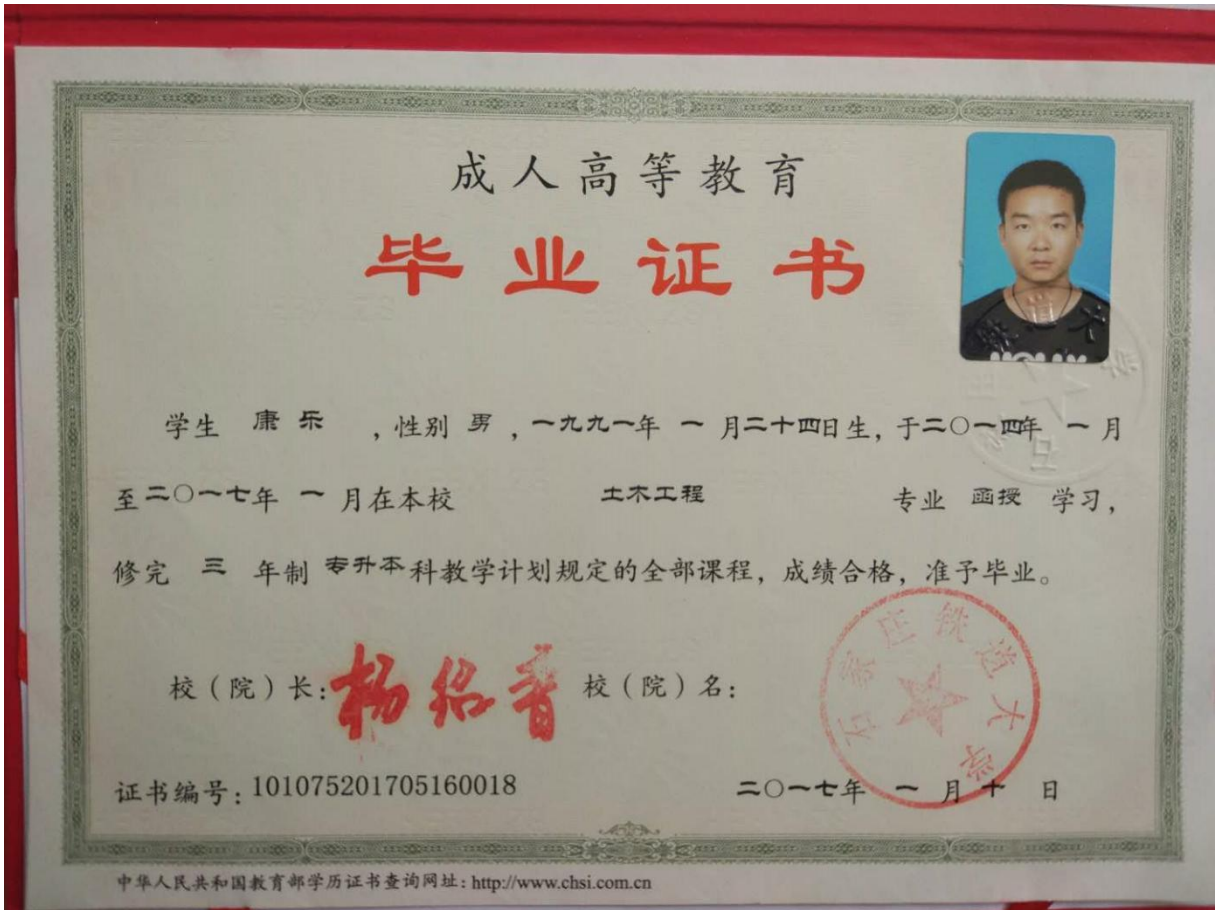 成人高等教育
毕业证书
学生 康乐 ，性别 男 ，一九九一年 一 月二十四日生，于二〇一四年 一 月
至二〇一七年 一 月在本校 土木工程 专业 函授 学习，
修完 三 年制 专升本科教学计划规定的全部课程，成绩合格，准予毕业。
校（院）长： 杨绍普 校（院）名：
石家庄铁道大学
证书编号：101075201705160018 二〇一七年 一 月 十 日
中华人民共和国教育部学历证书查询网址：http://www.chsi.com.cn